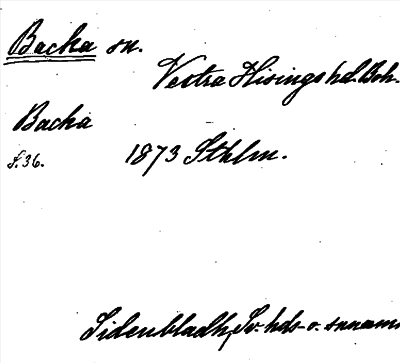 Backa sn.
Vestra Hisings hd. Boh.
Backa
s. 36.
1873 Sthlm.
Sidenbladh, Sv. hds- o. snnamn